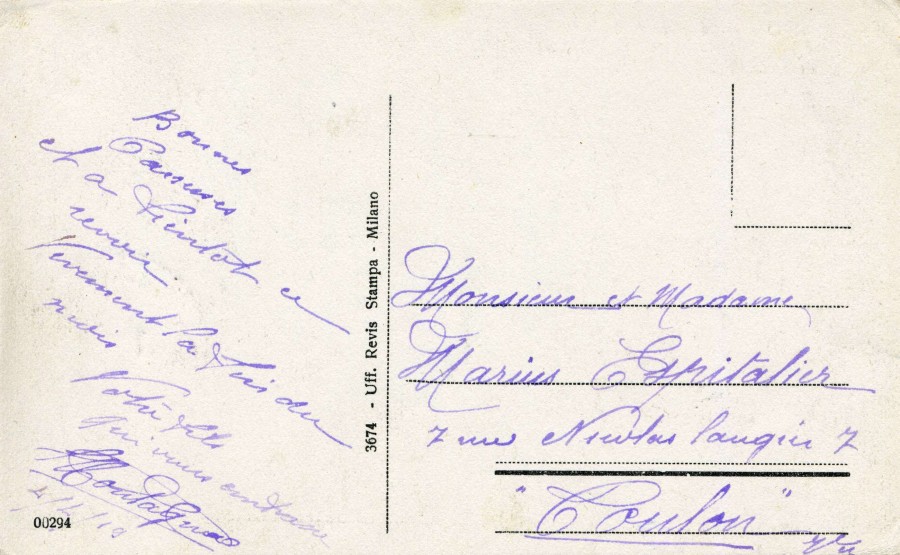 Bonnes
Caresses
et a Bientot ce
revoir
Vivement la Fin du
mois
Votre fils
qui vous embrasse
3674 - Uff. Revis Stampa - Milano
Monsieur et Madame
Marius Espitalier
7 rue Nicolas Laugier 7
"Toulon"
00294